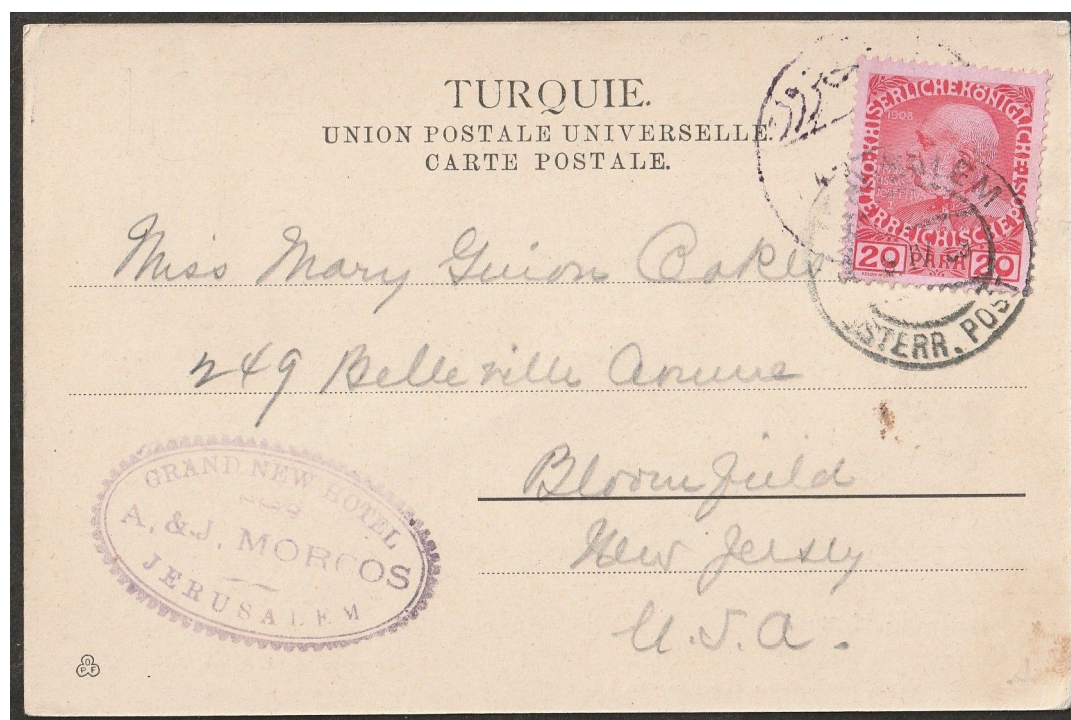 TURQUIE.
UNION POSTALE UNIVERSELLE.
CARTE POSTALE.
KAISERLICHE KÖNIGLICHE
ÖSTERREICHISCHE POST
1908
20 PARA 20
JERUSALEM
ÖSTERR. POST
Miss Mary Guion Oakes
249 Belleville Avenue
Bloomfield
New Jersey
U.S.A.
GRAND NEW HOTEL
A. & J. MORCOS
JERUSALEM
OPF